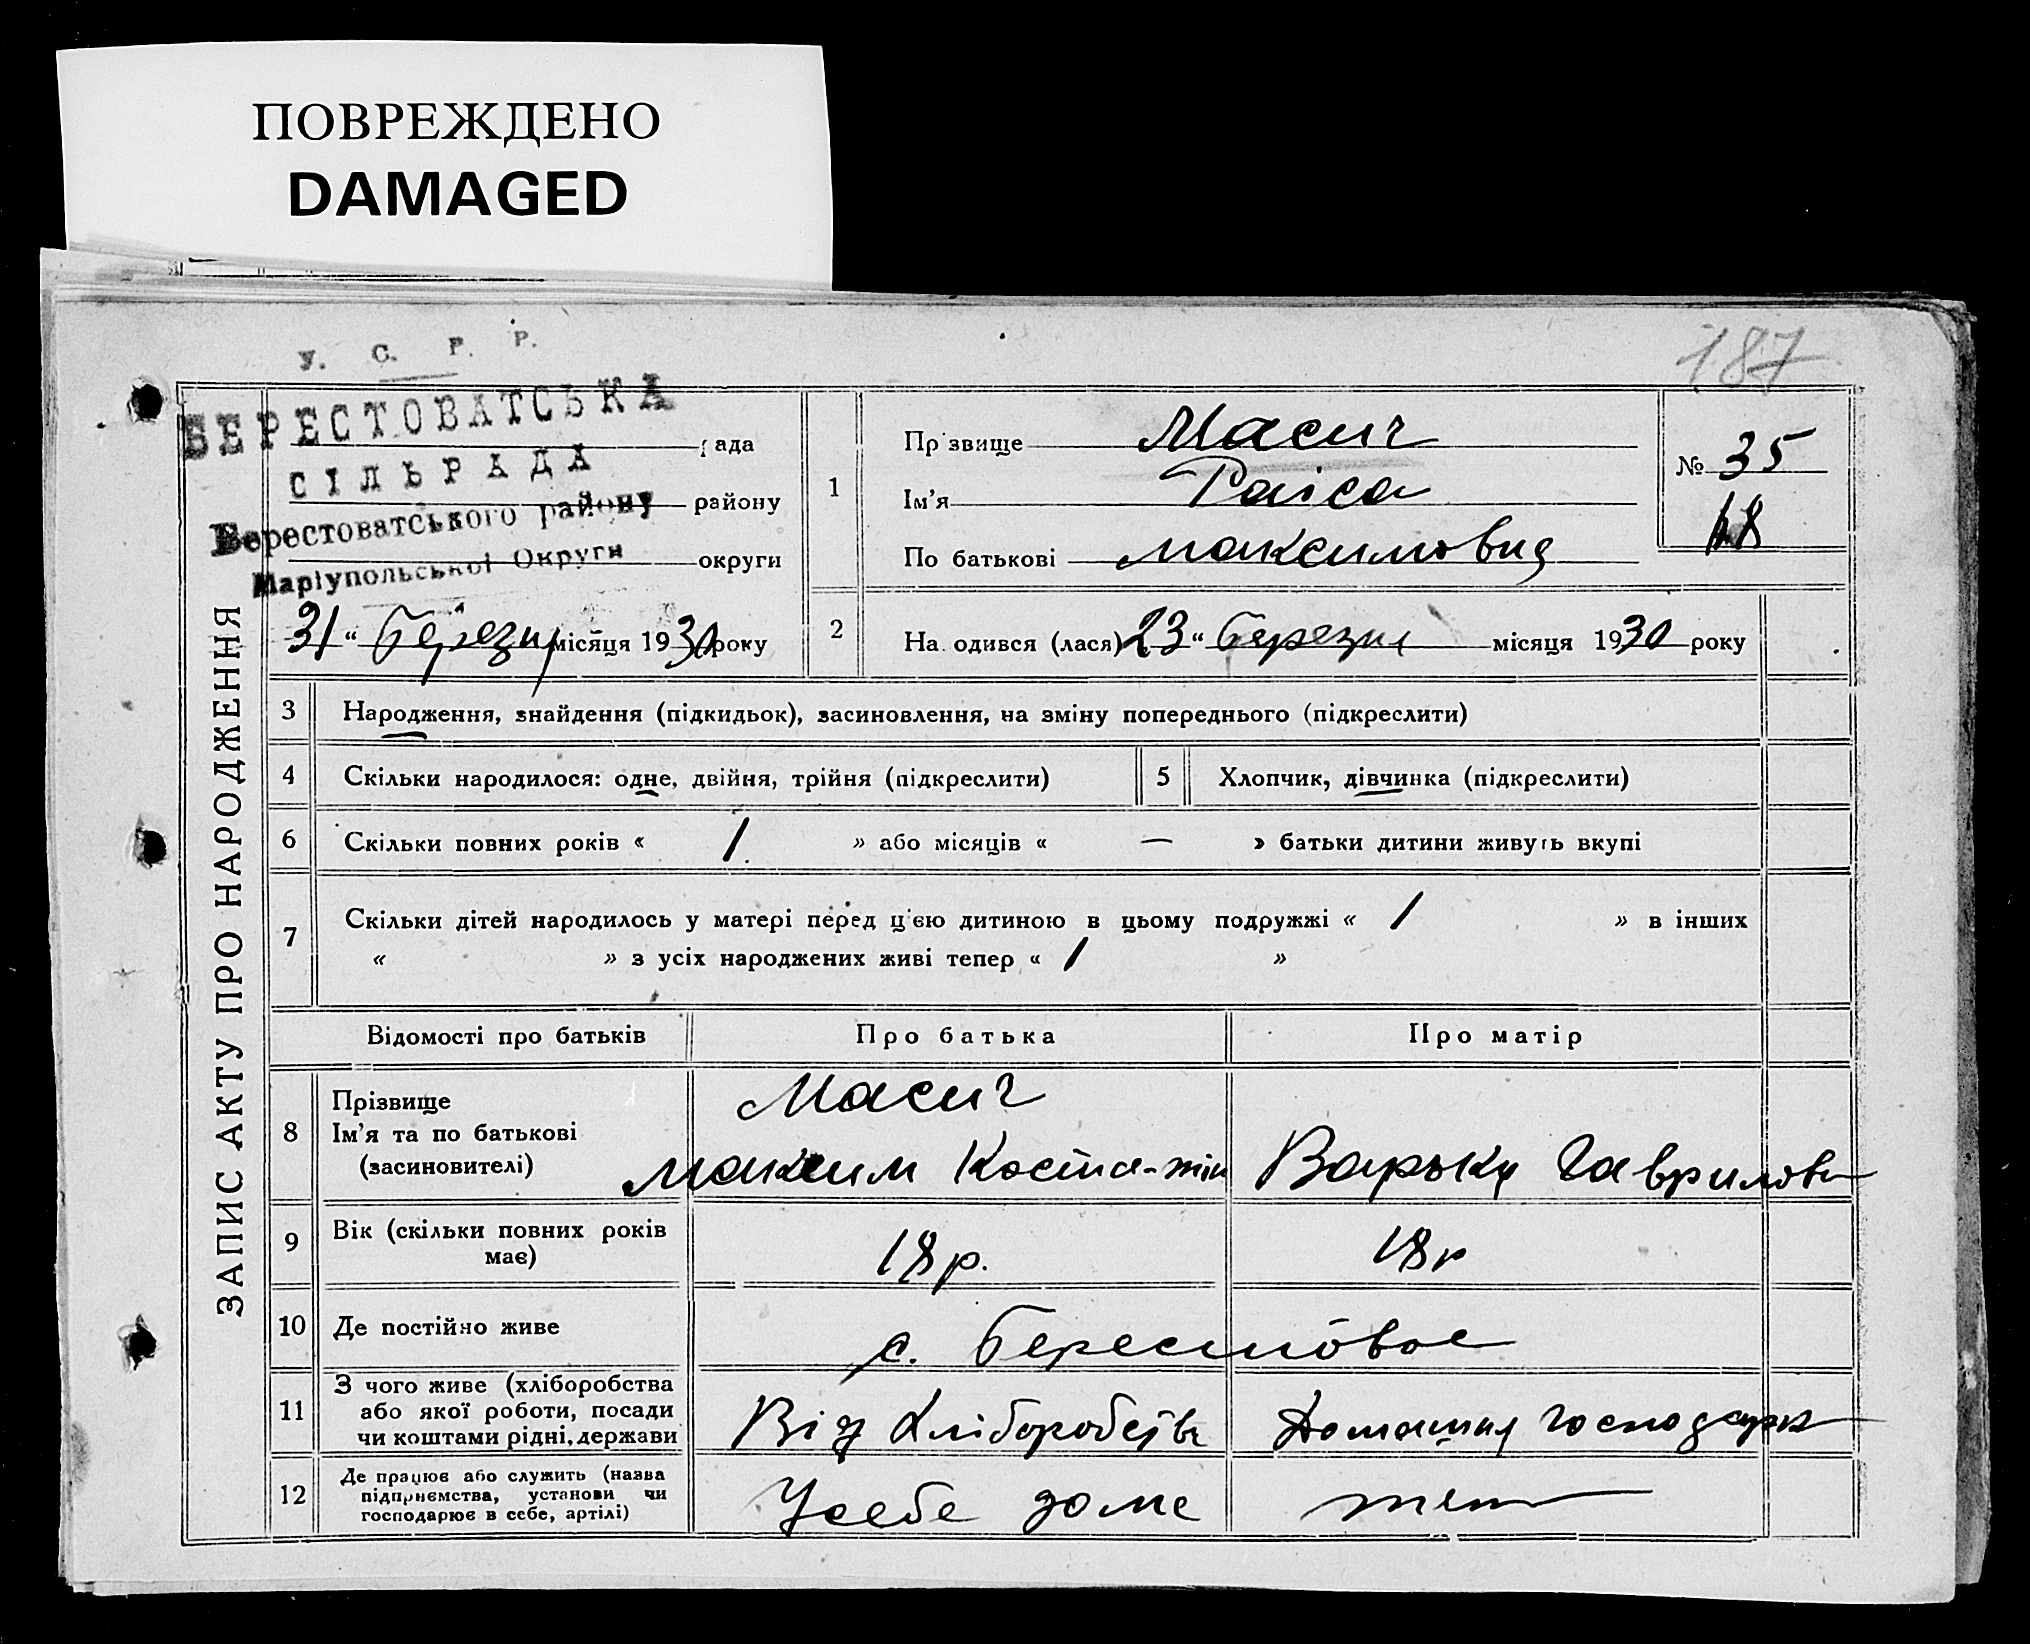 ПОВРЕЖДЕНО
DAMAGED
187
У. С. Р. Р.
БЕРЕСТОВАТСЬКА
рада
СІЛЬРАДА
району
Берестоватського району
округи
Маріупольської Округи
31 “ Березня місяця 1930 року
ЗАПИС АКТУ ПРО НАРОДЖЕННЯ
1
Прізвище Масич
Ім’я Раіса
По батькові Максимовна
№ 35
18
2 На одився (лася) 23 “ Березня місяця 1930 року
3 Народження, знайдення (підкидьок), засиновлення, на зміну попереднього (підкреслити)
4 Скільки народилося: одне, двійня, трійня (підкреслити) 5 Хлопчик, дівчинка (підкреслити)
6 Скільки повних років « 1 » або місяців « — » батьки дитини живуть вкупі
7 Скільки дітей народилось у матері перед ц’єю дитиною в цьому подружжі « 1 » в інших
« » з усіх народжених живі тепер « 1 »
Відомості про батьків Про батька Про матір
8 Прізвище
Ім’я та по батькові
(засиновителі)
Масич
Максим Коста-тін
Варька Гаврилов
9 Вік (скільки повних років
має)
18 р.
18 р
10 Де постійно живе с. Берестовое
11 З чого живе (хліборобства
або якої роботи, посади
чи коштами рідні, держави
Від Хліборобств
Домашня господарк
12 Де працює або служить (назва
підприємства, установи чи
господарює в себе, артілі)
Усебе доме
теж